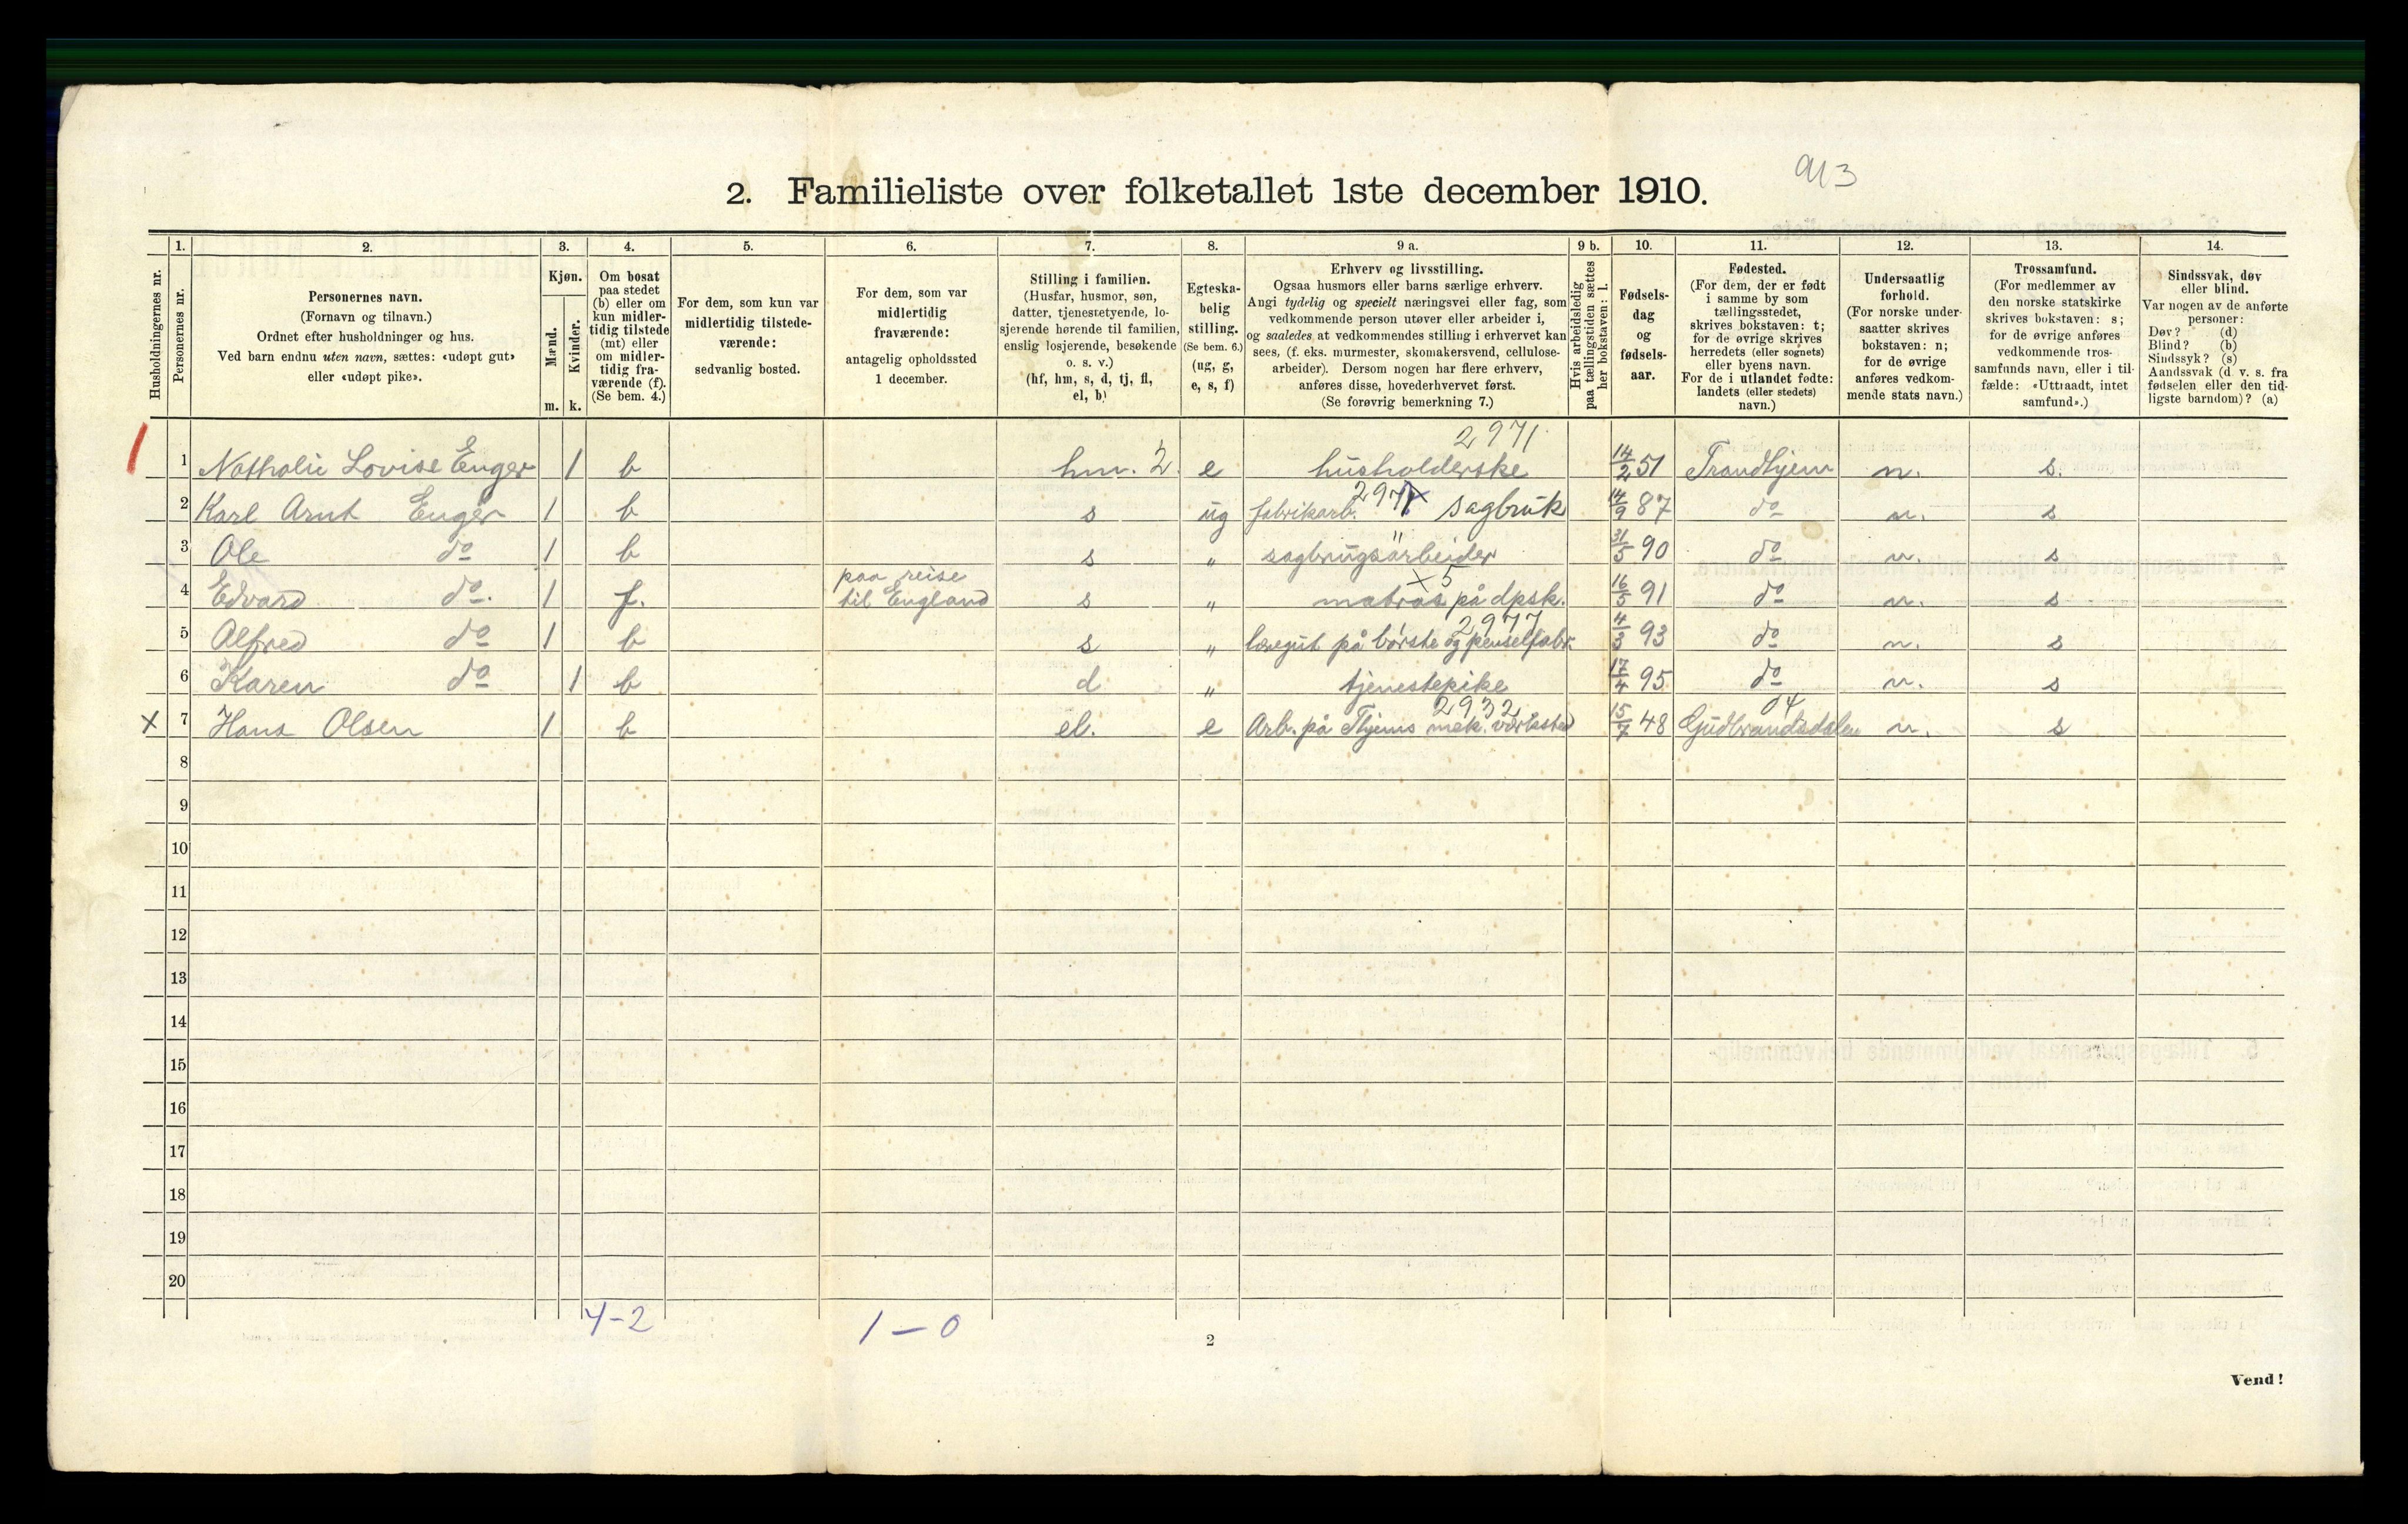 913
2. Familieliste over folketallet 1ste december 1910.
Husholdningernes nr.
1.
Personernes nr.
2.
Personernes navn.
(Fornavn og tilnavn.)
Ordnet efter husholdninger og hus.
Ved barn endnu uten navn, sættes: «udøpt gut»
eller «udøpt pike».
3.
Kjøn.
Mænd.
Kvinder.
m. k.
4.
Om bosat
paa stedet
(b) eller om
kun midler-
tidig tilstede
(mt) eller
om midler-
tidig fra-
værende (f).
(Se bem. 4.)
5.
For dem, som kun var
midlertidig tilstede-
værende:
sedvanlig bosted.
6.
For dem, som var
midlertidig
fraværende:
antagelig opholdssted
1 december.
7.
Stilling i familien.
(Husfar, husmor, søn,
datter, tjenestetyende, lo-
sjerende hørende til familien,
enslig losjerende, besøkende
o. s. v.)
(hf, hm, s, d, tj, fl,
el, b)
8.
Egteska-
belig
stilling.
(Se bem. 6.)
(ug, g,
e, s, f)
9 a.
Erhverv og livsstilling.
Ogsaa husmors eller barns særlige erhverv.
Angi tydelig og specielt næringsvei eller fag, som
vedkommende person utøver eller arbeider i,
og saaledes at vedkommendes stilling i erhvervet kan
sees, (f. eks. murmester, skomakersvend, cellulose-
arbeider). Dersom nogen har flere erhverv,
anføres disse, hovederhvervet først.
(Se forøvrig bemerkning 7.)
9 b.
Hvis arbeidsledig
paa tællingstiden sættes
her bokstaven: l.
10.
Fødsels-
dag
og
fødsels-
aar.
11.
Fødested.
(For dem, der er født
i samme by som
tællingsstedet,
skrives bokstaven: t;
for de øvrige skrives
herredets (eller sognets)
eller byens navn.
For de i utlandet fødte:
landets (eller stedets)
navn.)
12.
Undersaatlig
forhold.
(For norske under-
saatter skrives
bokstaven: n;
for de øvrige
anføres vedkom-
mende stats navn.)
13.
Trossamfund.
(For medlemmer av
den norske statskirke
skrives bokstaven: s;
for de øvrige anføres
vedkommende tros-
samfunds navn, eller i til-
fælde: «Uttraadt, intet
samfund».)
14.
Sindssvak, døv
eller blind.
Var nogen av de anførte
personer:
Døv? (d)
Blind? (b)
Sindssyk? (s)
Aandssvak (d. v. s. fra
fødselen eller den tid-
ligste barndom)? (a)
2971
1 Nathalie Lovise Enger 1 b hm. 2. e husholderske 14/2 51 Trondhjem n. s.
2 Karl Arnt Enger 1 b s ug fabrikarb. 2971 x sagbruk 14/9 87 do n. s
3 Ole do 1 b s " sagbrugsarbeider 31/5 90 do n. s
x5
4 Edvard do. 1 f. paa reise til England s " matros på dpsk. 16/5 91 do n. s
2977
5 Alfred do 1 b s " læregut på børste og penselfabr. 4/3 93 do n. s
6 Karen do 1 b d " tjenestepike 17/4 95 do n. s
2932 04
x 7 Hans Olsen 1 b el. e Arb. på Thjems mek. værksted 15/7 48 Gudbrandsdalen n. s
8
9
10
11
12
13
14
15
16
17
18
19
20
4-2 1-0
2
Vend!